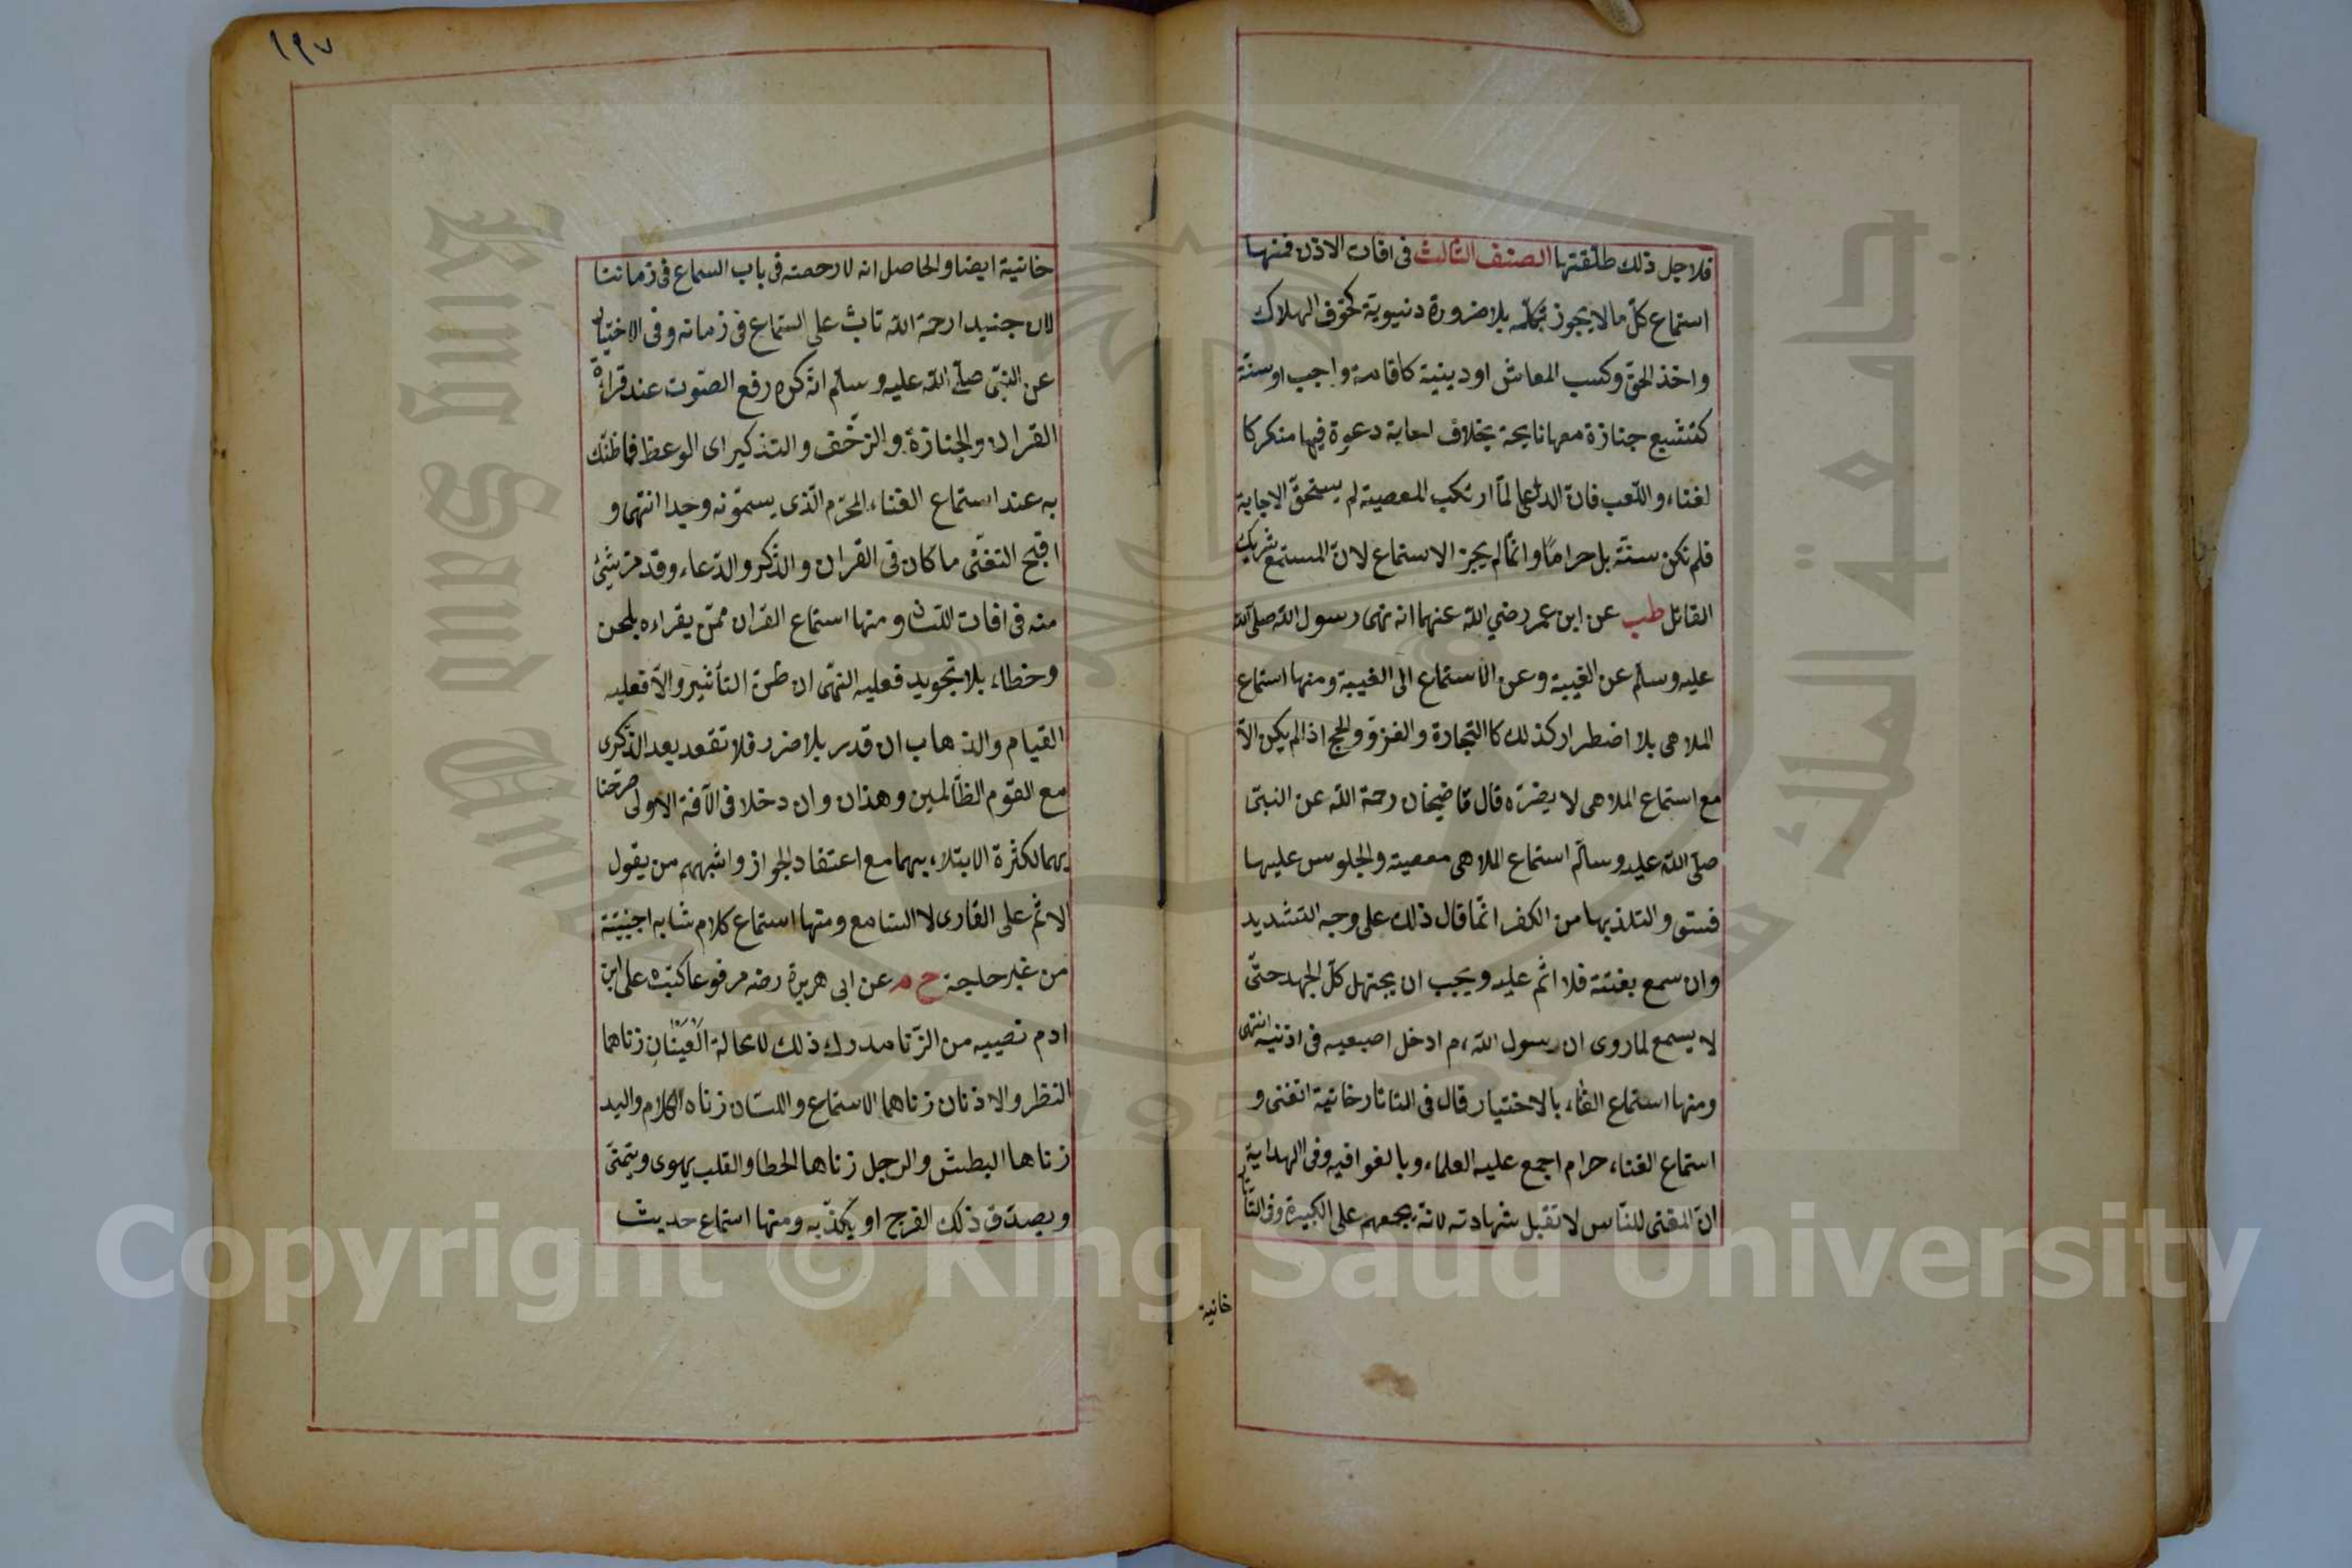 فلاجل ذلك طلقتها الصنف الثالث فى افات الاذن فمنها
استماع كل ما لا يجوز تكلمه بلا ضرورة دنيوية كخوف الهلاك
واخذ الحق وكسب المعاش او دينية كاقامة واجب او سنة
كتشييع جنازة معها نايحة بخلاف اجابة دعوة فيها منكر كا
لغناء واللعب فان الداعى لما ارتكب المعصية لم يستحق الاجابة
فلم تكن سنة بل حراما وانما لم يجز الاستماع لان المستمع شريك
القائل طب عن ابن عمر رضي الله عنهما انه نهى رسول الله صلى الله
عليه وسلم عن الغيبة وعن الاستماع الى الغيبة ومنها استماع
الملاهى بلا اضطرار كذلك كالتجارة والغزو والحج اذا لم يكن الا
مع استماع الملاهى لا يضره قال قاضيخان رحمة الله عن النبى
صلى الله عليه وسلم استماع الملاهى معصية والجلوس عليها
فسق والتلذذ بها من الكفر انما قال ذلك على وجه التشديد
وان سمع بغتة فلا اثم عليه ويجب ان يجتهد كل الجهد حتى
لا يسمع لما روى ان رسول الله ء م ادخل اصبعيه فى اذنيه انتهى
ومنها استماع الغناء بالاختيار قال فى التاتارخانية اتغنى و
استماع الغناء حرام اجمع عليه العلماء وبالغوا فيه وفى الهداية
ان المغنى للناس لا تقبل شهادته لانه يجمعهم على الكبيرة وفى التاتار
خانية
١٩٧
خانية ايضا والحاصل انه لا رخصة فى باب السماع فى زماننا
لان جنيدا رحمة الله تاب على السماع فى زمانه وفى الاختيار
عن النبى صلى الله عليه وسلم انه كره رفع الصوت عند قراءة
القران والجنازة والزحف والتذكير اى الوعظ فما ظنك
به عند استماع الغناء المحرم الذى يسمونه وجدا انتهى و
اقبح التغنى ما كان فى القران والذكر والدعاء وقد مر شئ
منه فى افات اللسان ومنها استماع القران ممن يقراءه بلحن
وخطاء بلا تجويد فعليه النهى ان ظن التأثير والا فعليه
القيام والذهاب ان قدر بلا ضرر فلا تقعد بعد الذكرى
مع القوم الظالمين وهذان وان دخلا فى الآفة الاولى صرحنا
بهما لكثرة الابتلاء بهما مع اعتقاد الجواز واشبههم من يقول
الاثم على القارى لا السامع ومنها استماع كلام شابه اجنبية
من غير حاجة خ م عن ابى هريرة رضه مرفوعا كتب على ابن
ادم نصيبه من الزنا مدرك ذلك لا محالة العينان زناهما
النظر والاذنان زناهما الاستماع واللسان زناه الكلام واليد
زناها البطش والرجل زناها الخطا والقلب يهوى ويتمنى
ويصدق ذلك الفرج او يكذبه ومنها استماع حديث
Copyright © King Saud University
جامعة الملك سعود
King Saud University
1957